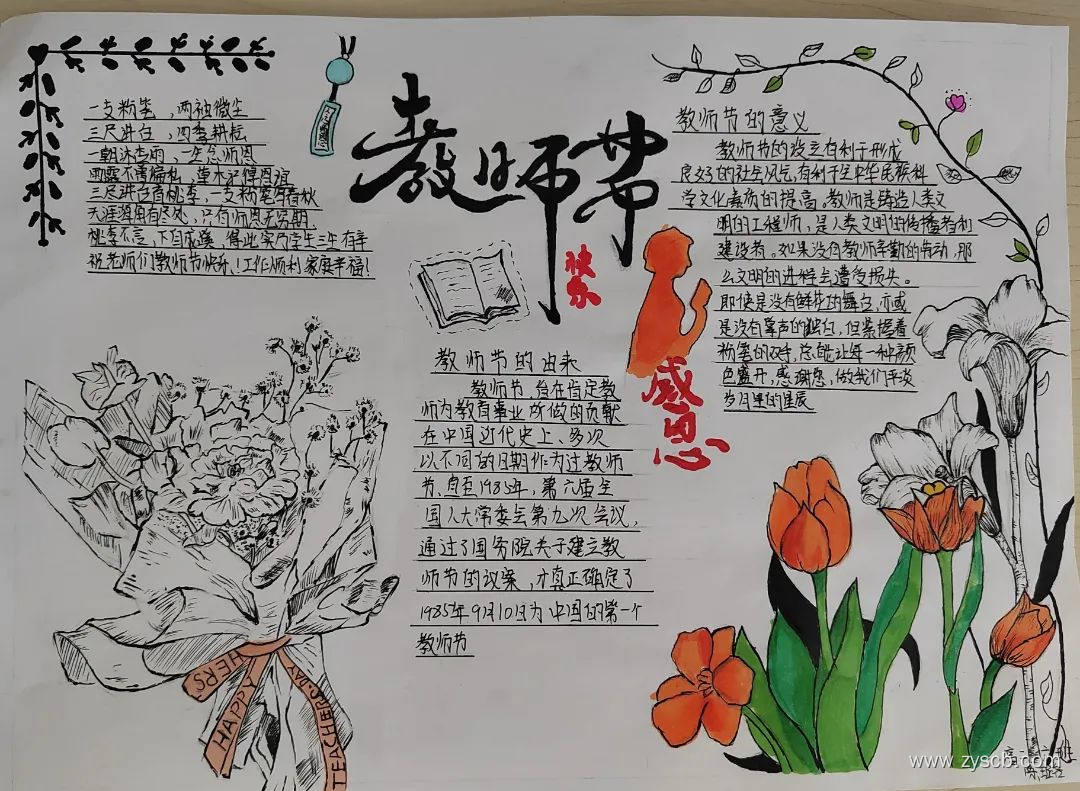 教师节
快乐
感恩
一支粉笔，两袖微尘
三尺讲台，四季耕耘
一朝沐杏雨，一生念师恩
雨露不需编织，草木记得恩谊
三尺讲台育桃李，一支粉笔写春秋
天涯海角有尽处，只有师恩无穷期，
桃李不言，下自成蹊，得此实乃学生三生有幸
祝老师们教师节快乐！工作顺利家庭幸福！
教师节的由来
教师节，旨在肯定教
师为教育事业所做的贡献
在中国近代史上、多次
以不同的日期作为过教师
节、直至1985年，第六届全
国人大常委会第九次会议，
通过了国务院关于建立教
师节的议案，才真正确定了
1985年9月10日为中国的第一个
教师节
教师节的意义
教师节的设立有利于形成
良好的社会风气，有利于全中华民族科
学文化素质的提高。教师是铸造人类文
明的工程师，是人类文明的传播者和
建设者。如果没有教师辛勤的劳动，那
么文明的进程会遭受损失。
即使是没有鲜花的舞台，亦或
是没有掌声的独白，但紧握着
粉笔的双手，总能让每一种颜
色盛开，感谢您，做我们平凡
岁月里的星辰
HAPPY
TEACHERS'DA
HERS
www.zyscb.com